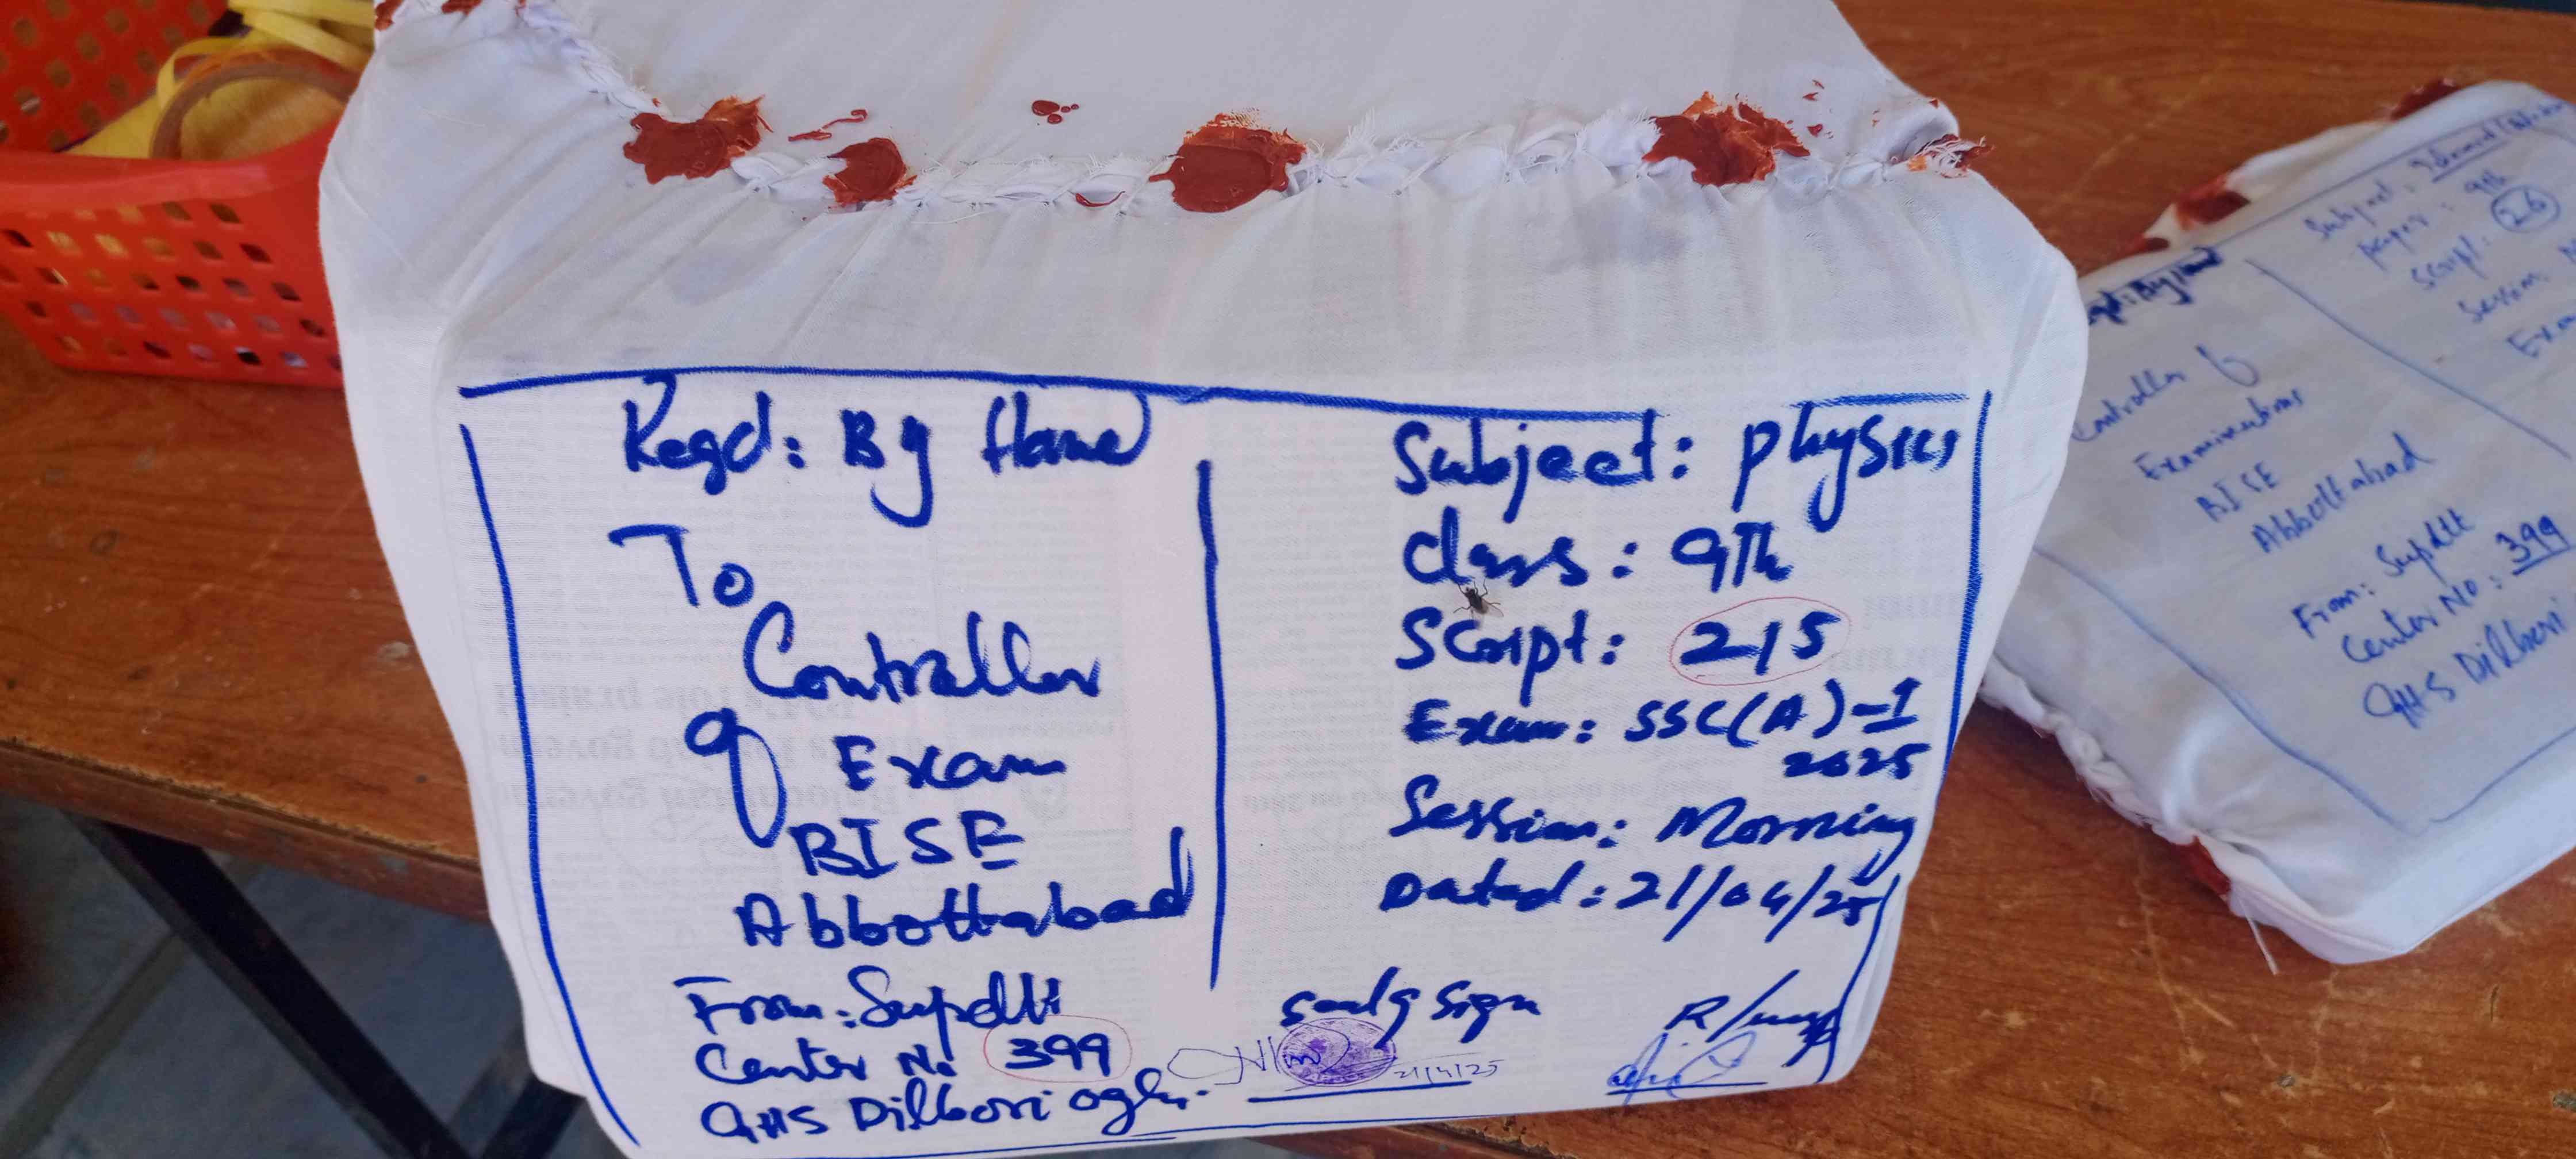 Regd: By Hand
To
Controller
of Exam
BISE
Abbottabad
From: Supdtt
Center No 399
GHS Dilbori oghi.
Subject: Physics
Class: 9Th
Script: 215
Exam: SSC(A)-I
2025
Session: Morning
Dated: 21/04/25
Seal & Sign
21/4/25
R/Insp
Subject:
Paper: 9th
Script: 26
Session:
Controller of
Examinations
BISE
Abbottabad
From: Supdtt
Center No: 399
GHS Dilbori